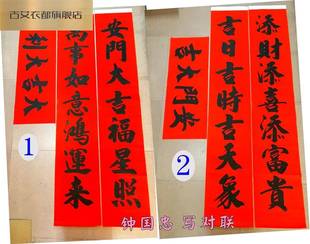 古艾衣都旗舰店
安門大吉福星照
萬事如意鴻運来
利大吉大
1
添財添喜添富貴
吉日吉時吉天象
吉大門安
2
钟国忠 写对联